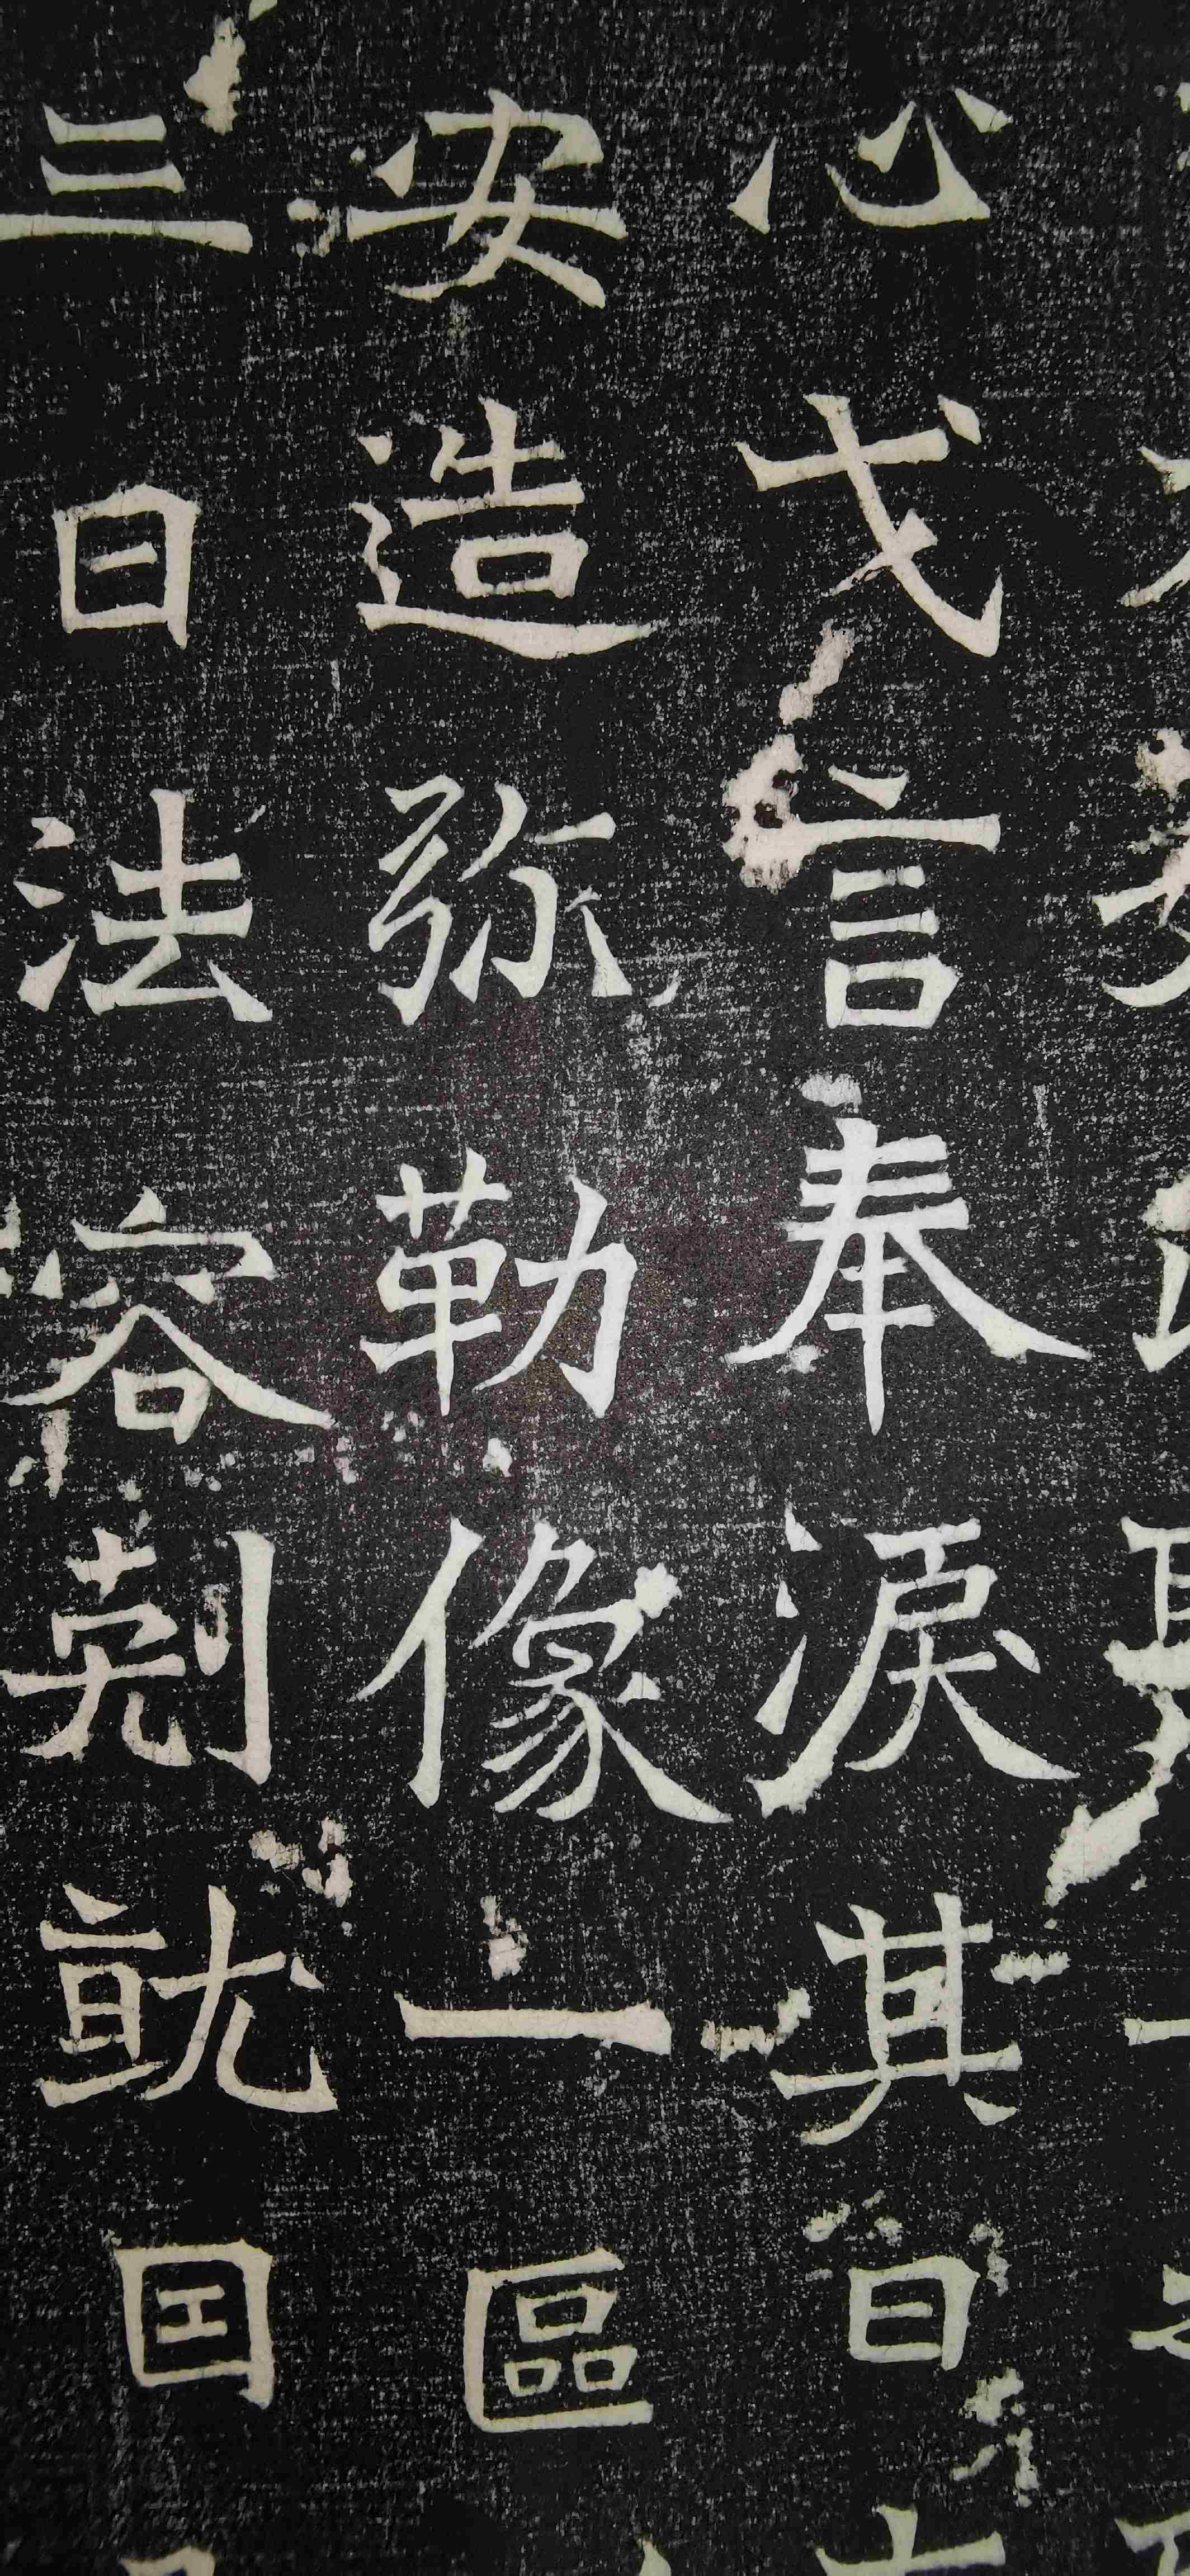 心戈言奉淚其日
安造弥勒像一區
三日法容剋就因